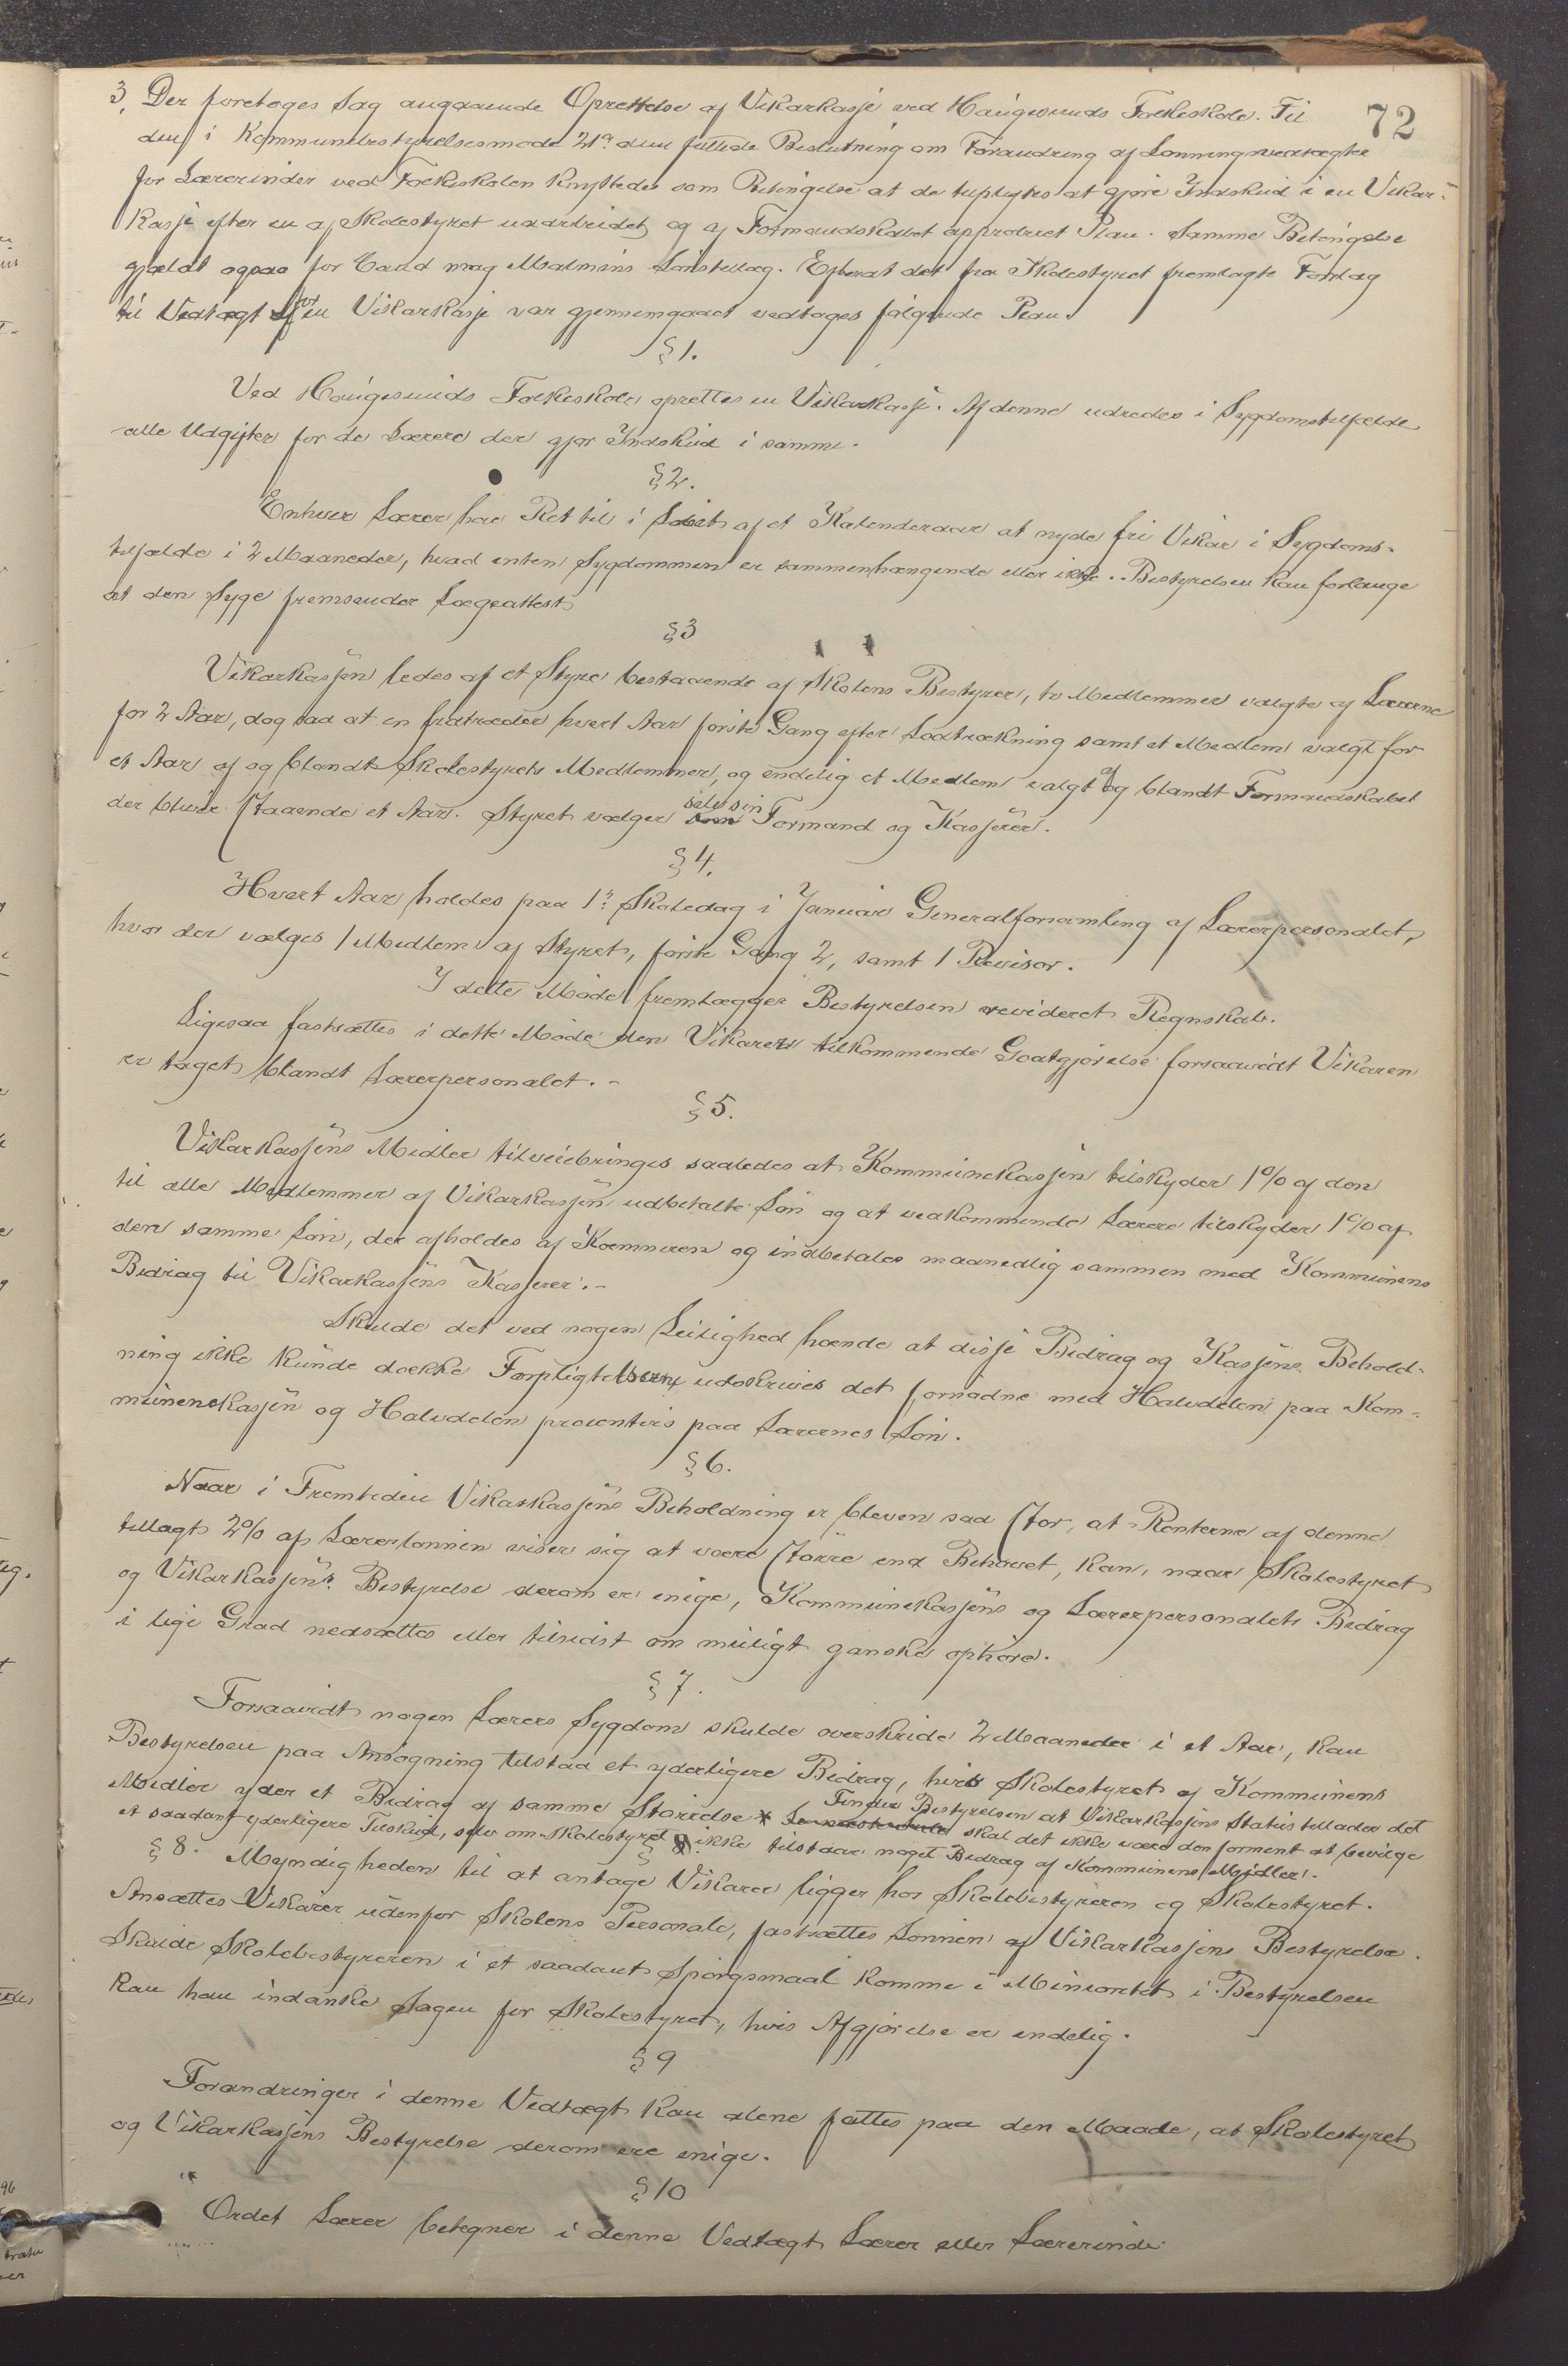 72
3. Der foretoges Sag angaaende Oprettelse af Vikarkasse ved Haugesunds Folkeskole. Til
den i Kommunebestyrelsesmøde 21de dens fattede Beslutning om Forandring af Lønningsvedtægter
for Lærerinder ved Folkeskolen knyttedes som Betingelse at de tilpligtes at gjøre Indskud i en Vikar-
kasse efter en af Skolestyret udarbeidet og af Formandskabet approberet Plan. Samme Betingelse
gjældt ogsaa for Cand mag Malmins Lønstillæg. Efterat det fra Skolestyret fremlagte Forslag
til Vedtægt for en Vikarkasse var gjennemgaaet vedtoges følgende Plan.
§ 1.
Ved Haugesunds Folkeskole oprettes en Vikarkasse. Af denne udredes i Sygdomstilfælde
alle Udgifter for de Lærere der gjør Indskud i samme.
§ 2.
Enhver Lærer har Ret til i Løbet af et Kalenderaar at nyde fri Vikar i Sygdoms-
tilfælde i 2 Maaneder, hvad enten Sygdommen er sammenhængende eller ikke. Bestyrelsen kan forlange
at den Syge fremsender Lægeattest
§ 3
Vikarkassen ledes af et Styre bestaaende af Skolens Bestyrer, to Medlemmer valgte af Lærerne
for 2 Aar, dog saa at en fratræder hvert Aar første Gang efter Lodtrækning samt et Medlem valgt for
et Aar af og blandt Skolestyrets Medlemmer, og endelig et Medlem valgt af og blandt Formandskabet
der bliver staaende et Aar. Styret vælger selv sin Formand og Kasserer.
§ 4.
Hvert Aar holdes paa 1ste Skoledag i Januar Generalforsamling af Lærerpersonalet,
hvor der vælges 1 Medlem af Styret, første Gang 2, samt 1 Revisor.
I dette Møde fremlægger Bestyrelsen revideret Regnskab.
Ligesaa fastsættes i dette Møde den Vikaren tilkommende Godtgjørelse forsaavidt Vikaren
er taget blandt Lærerpersonalet. -
§ 5.
Vikarkassens Midler tilveiebringes saaledes at Kommunekassen tilskyder 1% af den
til alle Medlemmer af Vikarkassen udbetalte Løn og at vedkommende Lærere tilskyder 1% af
den samme Løn, der afholdes af Kæmneren og indbetales maanedlig sammen med Kommunens
Bidrag til Vikarkassens Kasserer. -
Skulde det ved nogen Leilighed hænde at disse Bidrag og Kassens Behold-
ning ikke kunde dække Forpligtelserne udskrives det fornødne med Halvdelen paa Kom-
munenekassen og Halvdelen procentvis paa Lærernes Løn.
§ 6.
Naar i Fremtiden Vikarkassens Beholdning er bleven saa stor, at Renterne af denne
tillagt 2% af Lærerlønnen viser sig at være større end Behovet, kan, naar Skolestyret
og Vikarkassens Bestyrelse derom er enige, Kommunekassens og Lærerpersonalets Bidrag
i lige Grad nedsættes eller tilsidst om muligt ganske ophøre.
§ 7.
Forsaavidt nogen Lærers Sygdom skulde overskride 2 Maaneder i et Aar, kan
Bestyrelsen paa Ansøgning tilstaa et yderligere Bidrag, hvis Skolestyret af Kommunens
Midler yder et Bidrag af samme Størrelse * Finder Bestyrelsen at Vikarkassens Status tillader det skal det ikke være den forment at bevilge
et saadant yderligere Tilskud, selv om Skolestyret ikke tilstaar noget Bidrag af Kommunens Midler.
§ 8. Myndigheden til at antage Vikarer ligger hos Skolebestyreren og Skolestyret.
Ansættes Vikarer udenfor Skolens Personale, fastsættes Lønnen af Vikarkassens Bestyrelse.
Skulde Skolebestyreren i et saadant Spørgsmaal komme i Minoritet i Bestyrelsen
kan han indanke Sagen for Skolestyret, hvis Afgjørelse er endelig.
§ 9
Forandringer i denne Vedtægt kan alene fattes paa den Maade, at Skolestyret
og Vikarkassens Bestyrelse derom ere enige.
§ 10
Ordet Lærer betegner i denne Vedtægt Lærer eller Lærerinde